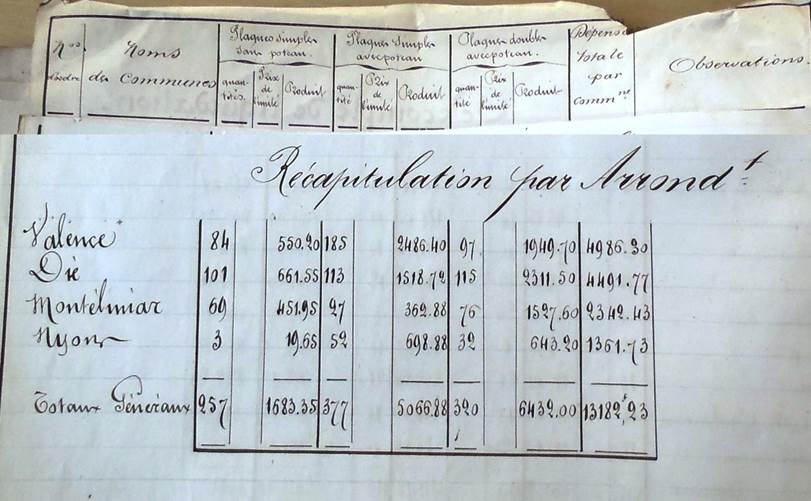 Nos d'ordre
Noms
des Communes
Plaques simples
sans poteau.
quan-
tités.
Prix
de
l'unité
Produit
Plaques simples
avec poteau
quan-
tité
Prix
de
l'unité
Produit
Plaques doubles
avec poteau.
quan-
tité
Prix
de
l'unité
Produit
Dépense
totale
par
commne
Observations.
Récapitulation par Arrondt
Valence 84 550.20 185 2486.40 97 1949.70 4986.30
Die 101 661.55 113 1518.72 115 2311.50 4491.77
Montélimar 69 451.95 27 362.88 76 1527.60 2342.43
Nyons 3 19.65 52 698.88 32 643.20 1361.73
Totaux Généraux 257 1683.35 377 5066.88 320 6432.00 13182f,23